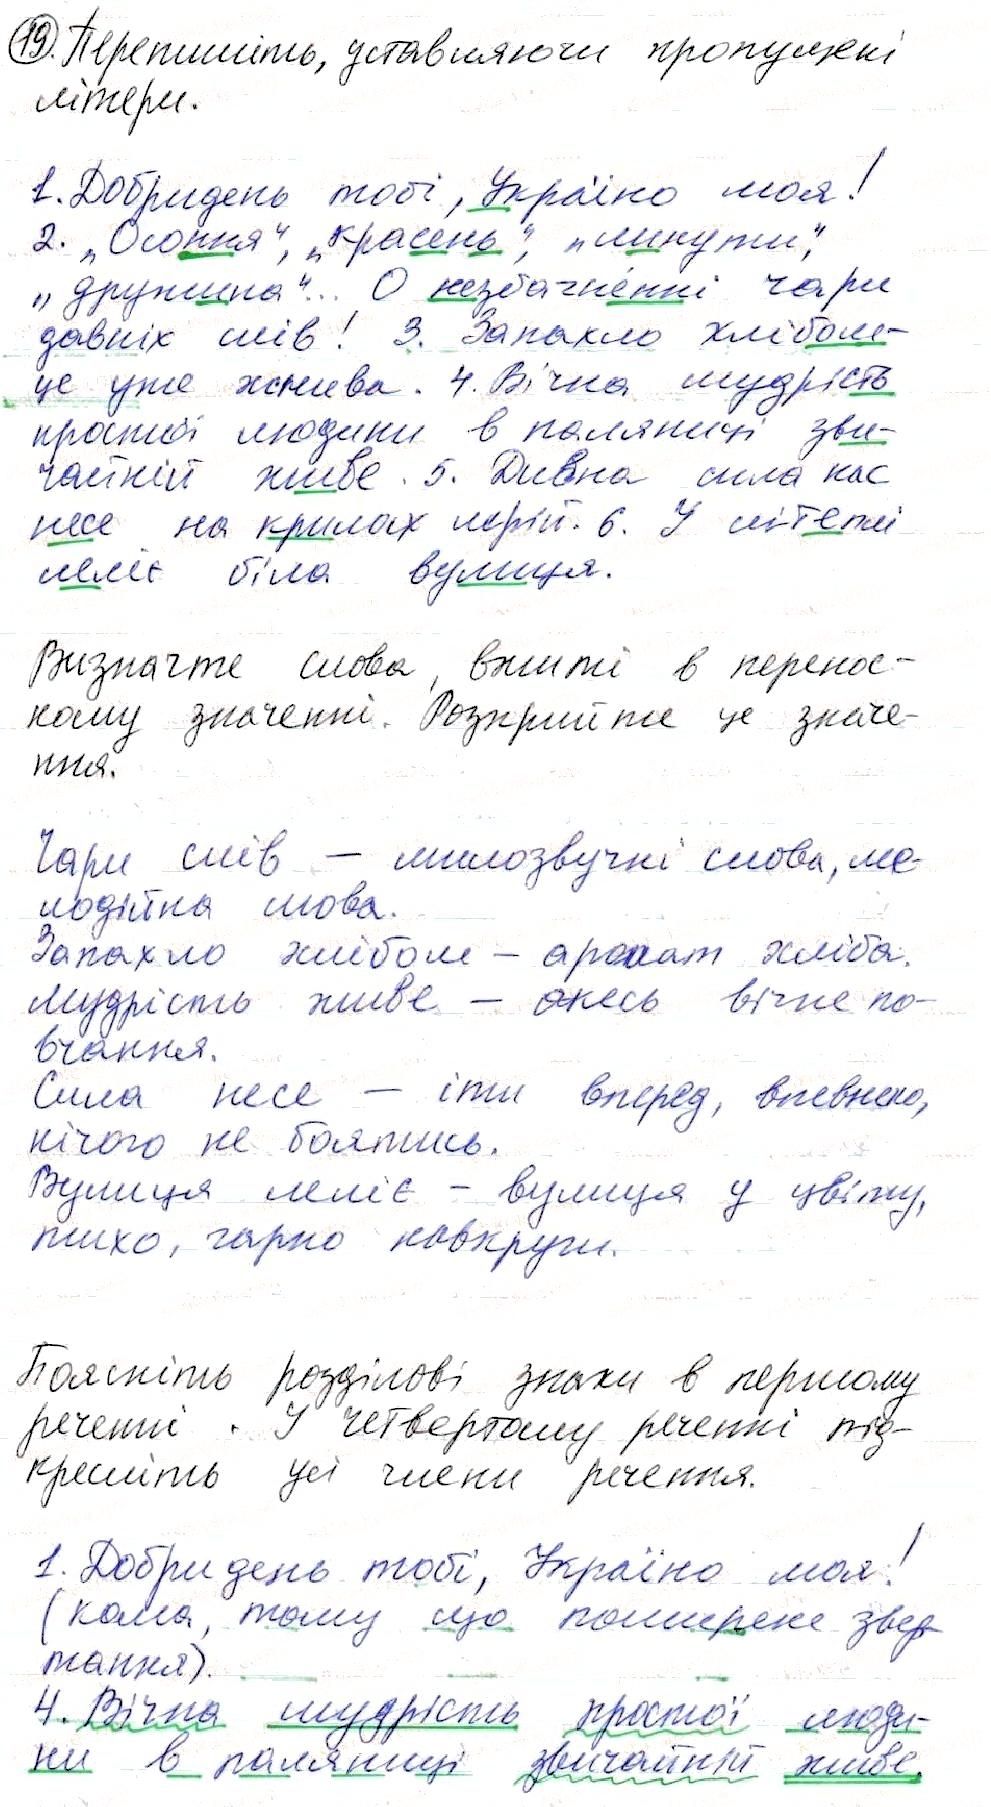 19. Перепишіть, уставляючи пропущені
літери.
1. Добридень тобі, Україно моя!
2. „Осоння", „красень", „минути",
„дружина"... О незбагненні чари
давніх слів! 3. Запахло хлібом-
це уже жнива. 4. Вічна мудрість
простої людини в паляниці зви-
чайній живе. 5. Дивна сила нас
несе на крилах мрій. 6. У літеплі
мліє біла вулиця.
Визначте слова, вжиті в перенос-
ному значенні. Розкрийте це значе-
ння.
Чари слів – милозвучні слова, ме-
лодійна мова.
Запахло хлібом – аромат хліба.
Мудрість живе – якесь вічне по-
вчання.
Сила несе – іти вперед, впевнено,
нічого не боятись.
Вулиця мліє – вулиця у цвіту,
тихо, гарно навкруги.
Поясніть розділові знаки в першому
реченні. У четвертому реченні під-
кресліть усі члени речення.
1. Добридень тобі, Україно моя!
(кома, тому що поширене звер-
тання).
4. Вічна мудрість простої люди-
ни в паляниці звичайній живе.